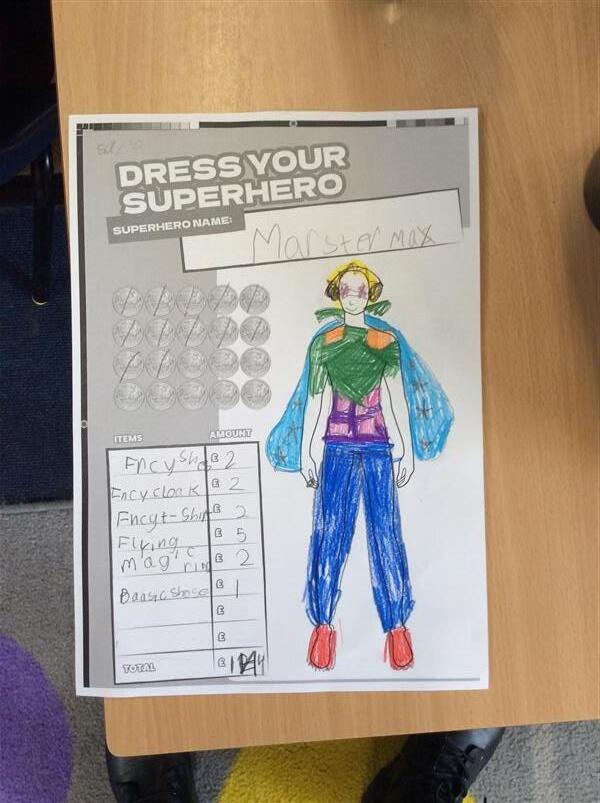 DRESS YOUR
SUPERHERO
SUPERHERO NAME:
Marster max
ITEMS AMOUNT
Fncy sho £ 2
Fncy cloak £ 2
Fncyt-Shirt £ 2
Flying £ 5
magic ring £ 2
Baasic shose £ 1
£
£
TOTAL £ 14